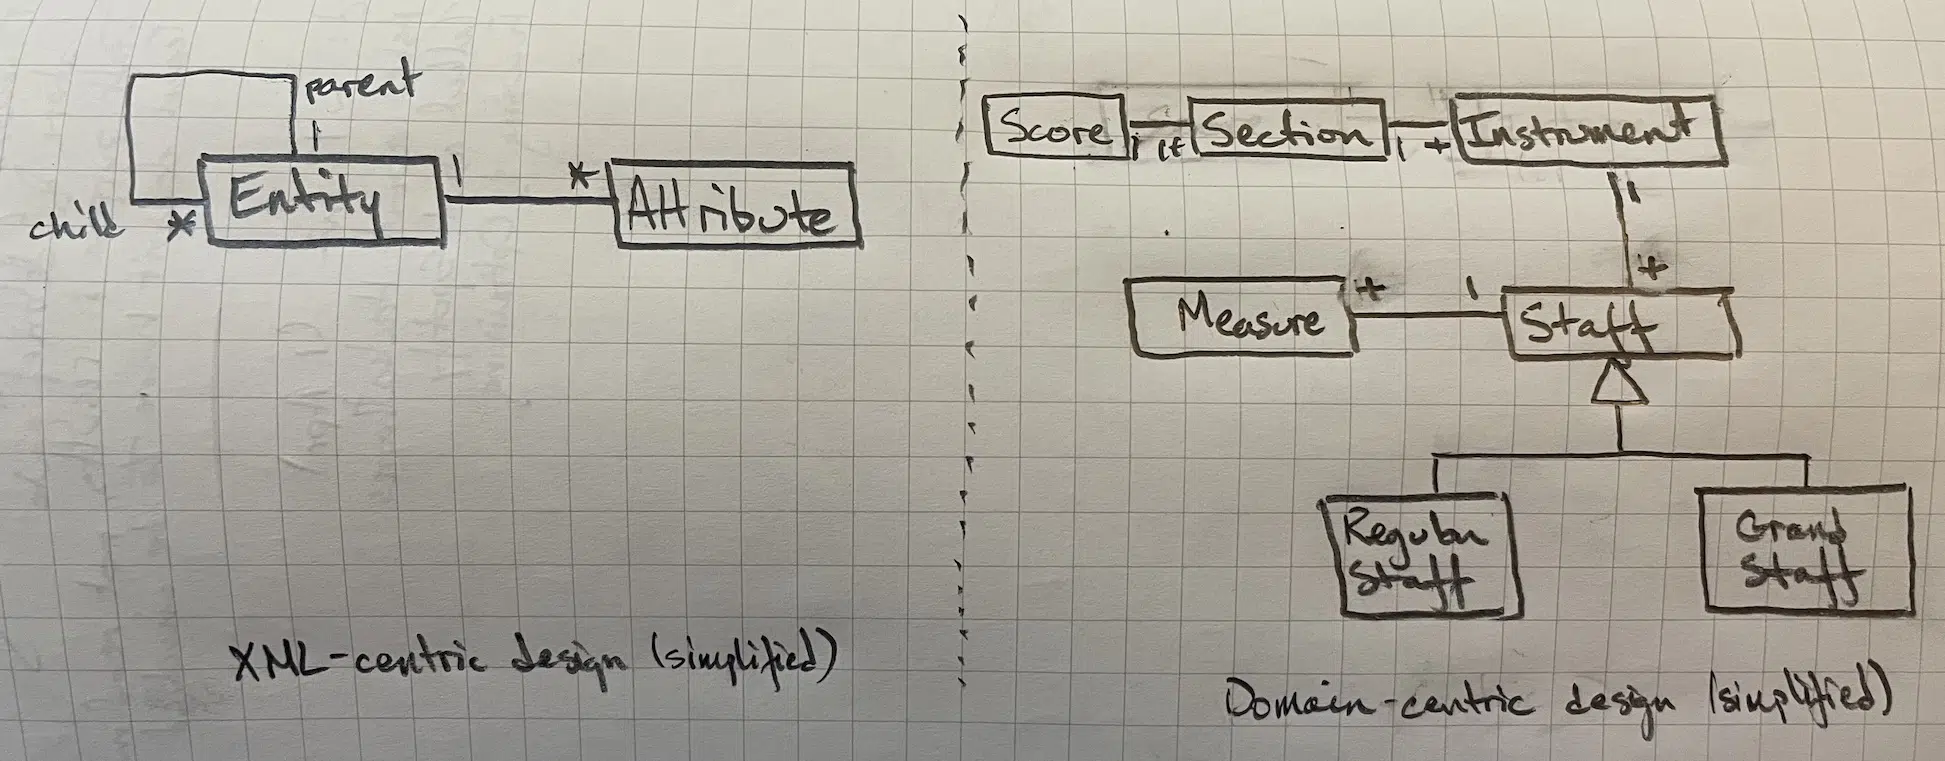 parent
1
Entity
1
*
Attribute
child
*
XML-centric design (simplified)
Score
1
+
Section
1
+
Instrument
1
+
Measure
+
1
Staff
Regular
Staff
Grand
Staff
Domain-centric design (simplified)